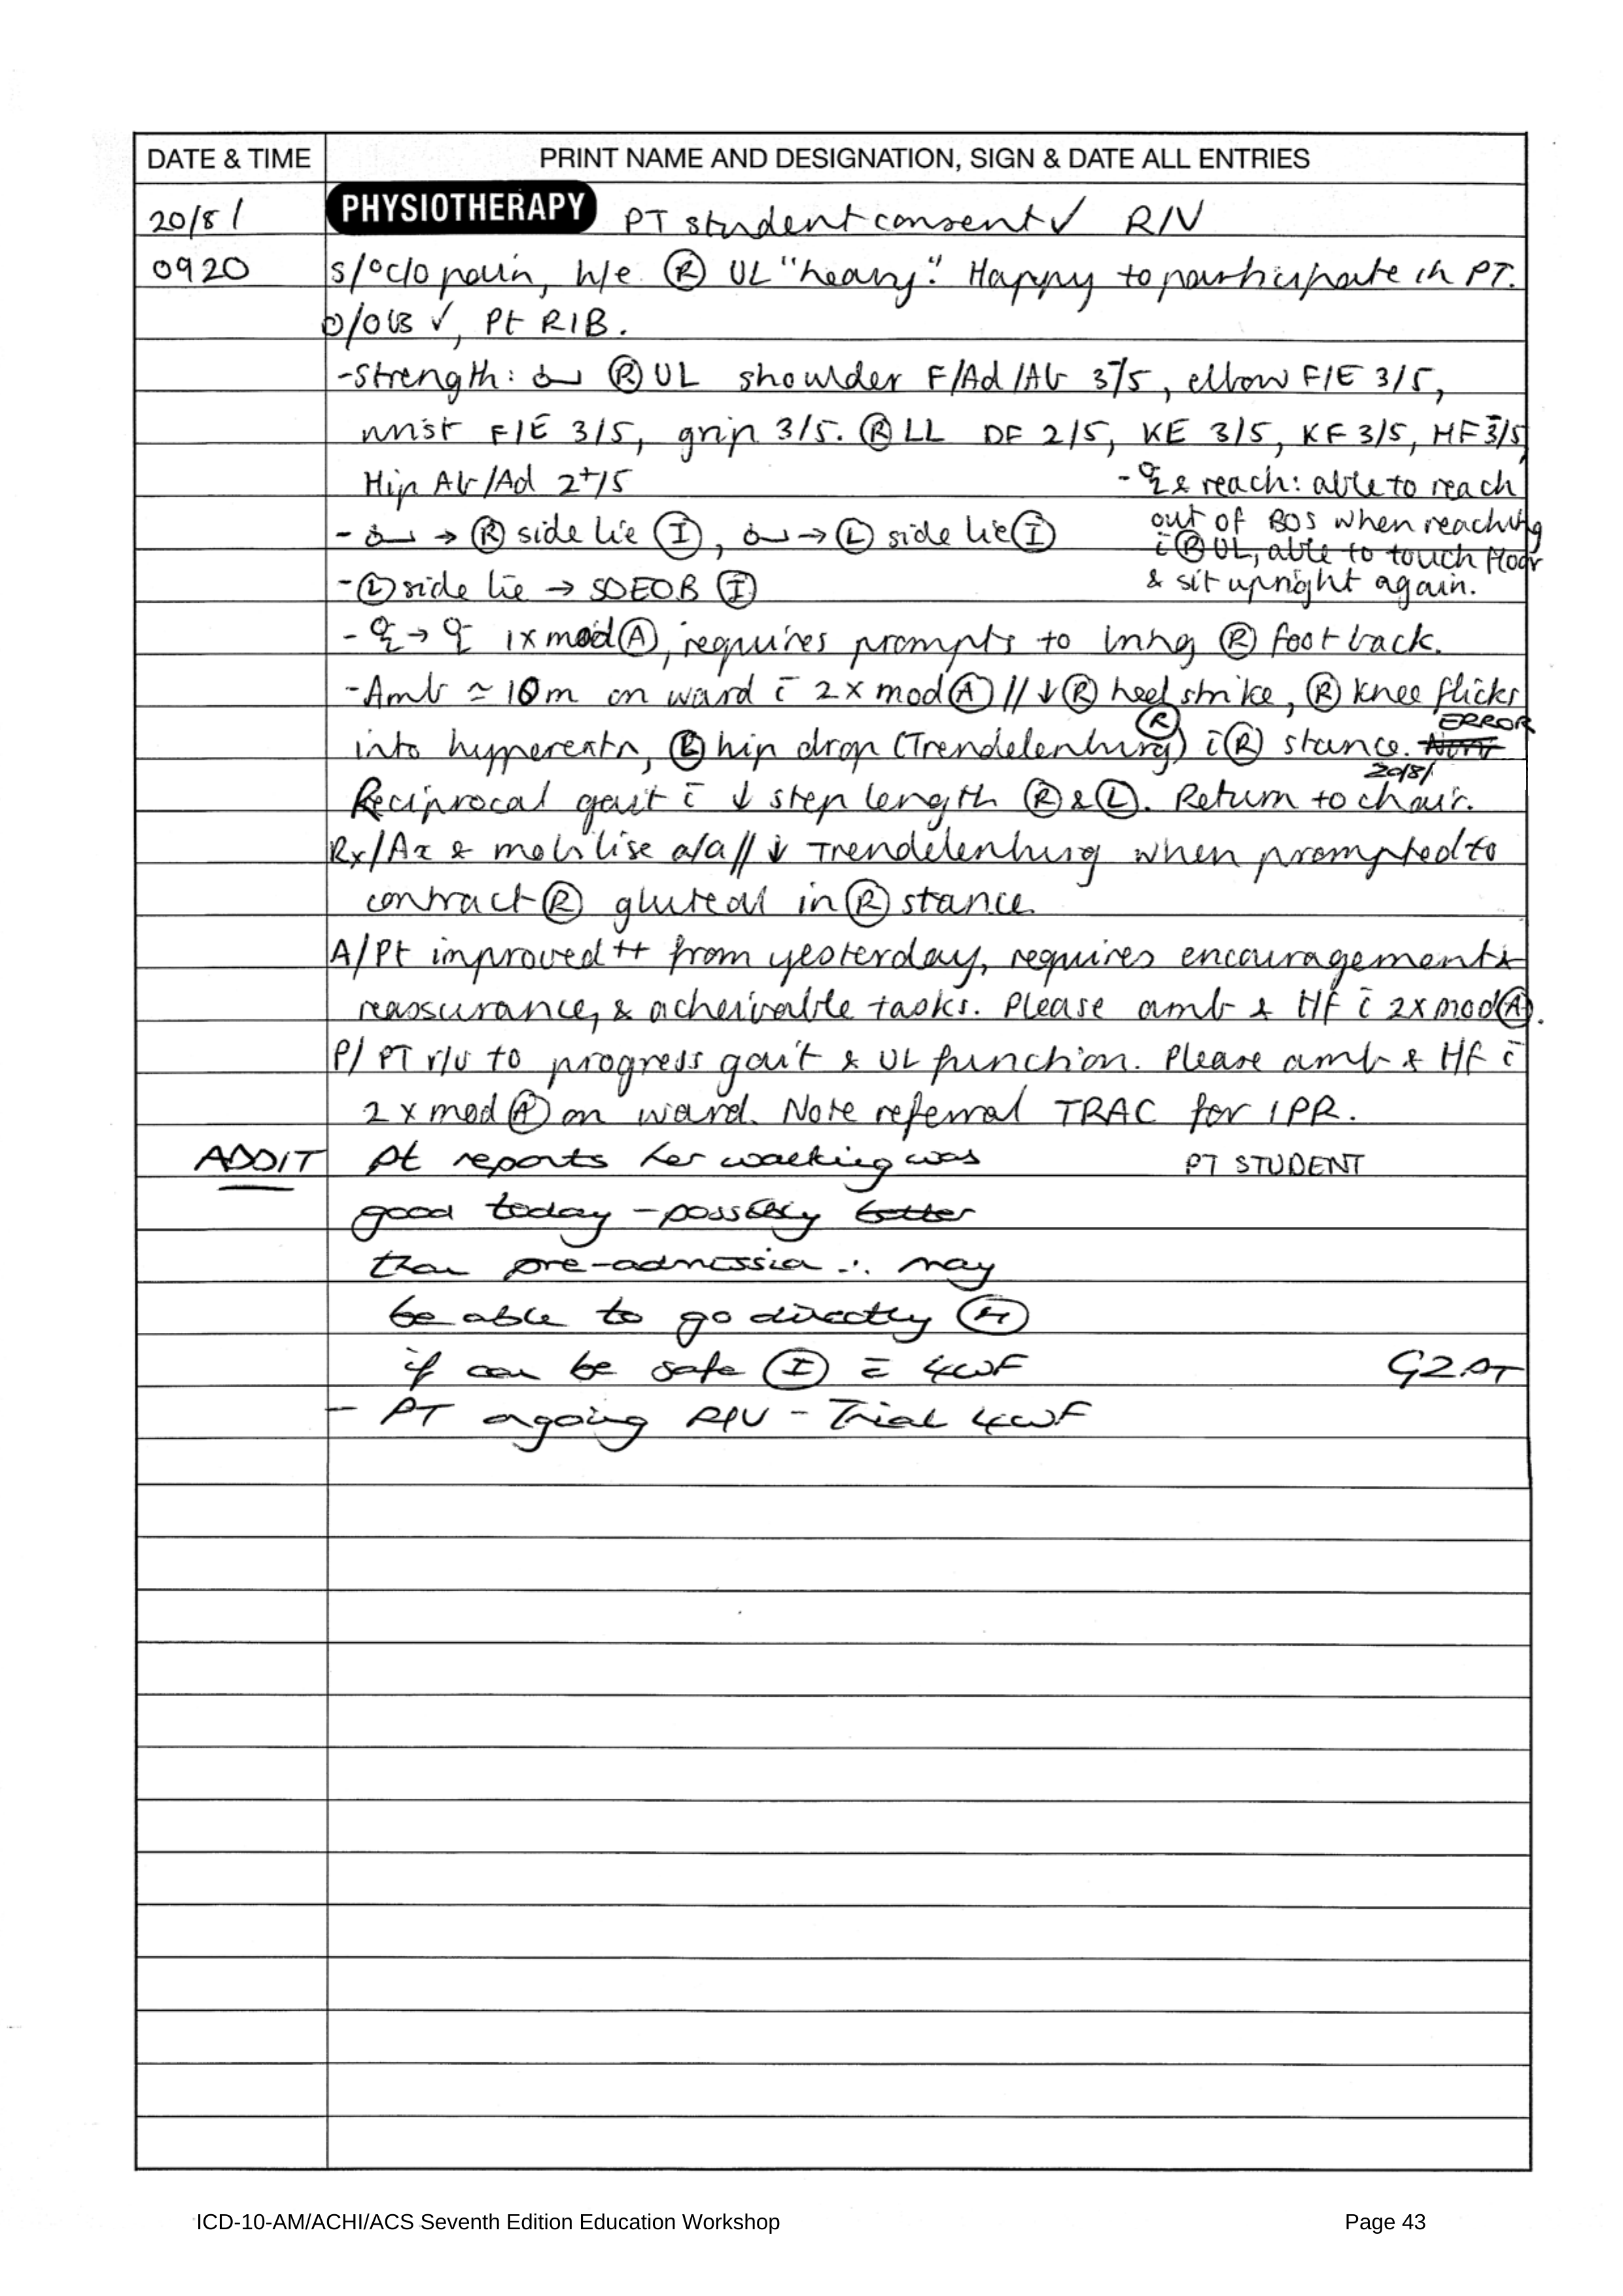 DATE & TIME PRINT NAME AND DESIGNATION, SIGN & DATE ALL ENTRIES
20/8/ PHYSIOTHERAPY PT student consent ✓ R/V
0920 S/°c/o pain, h/e Ⓡ UL "heavy". Happy to participate in PT.
O/ ✓, Pt RIB.
-Strength: Ⓡ UL shoulder F/Ad/Ab 3⁻/5, elbow F/E 3/5,
wrist F/E 3/5, grip 3/5. Ⓡ LL DF 2/5, KE 3/5, KF 3/5, HF 3⁻/5,
Hip Ab/Ad 2⁺/5
- & reach: able to reach
out of BOS when reaching
c̄ Ⓡ UL, able to touch floor
& sit upright again.
- → Ⓡ side lie Ⓘ, → Ⓛ side lie Ⓘ
-Ⓛ side lie → SOEOB Ⓘ
- → 1x mod Ⓐ, requires prompts to bring Ⓡ foot back.
-Amb ≃ 10m on ward c̄ 2x mod Ⓐ // ↓ Ⓡ heel strike, Ⓡ knee flicks
into hyperextn, hip drop (Trendelenburg) Ⓡ c̄ Ⓡ stance. ERROR
20/8/
Reciprocal gait c̄ ↓ step length Ⓡ & Ⓛ. Return to chair.
Rx/Ax & mobilise a/a // ↓ Trendelenburg when prompted to
contract Ⓡ gluteal in Ⓡ stance.
A/Pt improved ++ from yesterday, requires encouragement &
reassurance, & acheivable tasks. Please amb & HF c̄ 2x mod Ⓐ.
P/ PT r/v to progress gait & UL function. Please amb & HF c̄
2 x mod Ⓐ on ward. Note referral TRAC for IPR.
ADDIT Pt reports her walking was PT STUDENT
good today - possibly better
than pre-admission ∴ may
be able to go directly Ⓗ
if can be safe Ⓘ c̄ 4WF
- PT ongoing R/V - Trial 4WF
ICD-10-AM/ACHI/ACS Seventh Edition Education Workshop Page 43